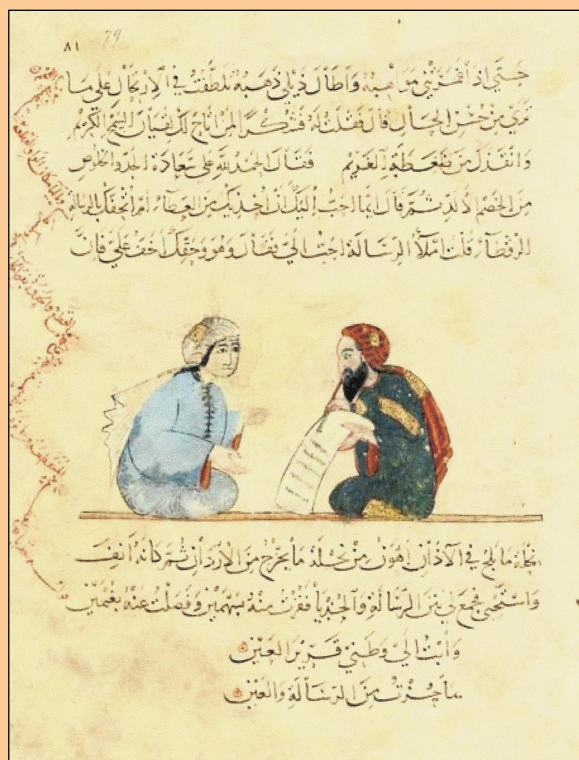 ٨١ 79
حتى اذا غمرتني مواهبه واطال ذيلي ذهبه تلطفت في الارتحال على ما
ترى من حسن الحال قال فقلت له شكرا لمن اتاح لك لقيان السمح الكريم
وانقذك من ضغطة الغريم فقال الحمد لله على سعادة الجد والخلوص
من الخصم الالد ثم قال ايما احب اليك ان احذيك من العطاء ام اتحفك بالرسالة
الرقطاء قلت املاء الرسالة احب الي فقال وهو وحقك اخف علي فان
نحلة ما يلج في الاذان اهون من نحلة ما يخرج من الاردان ثم كانه انف
واستحيى فجمع لي بين الرسالة والحذيا ففزت منه بسهمين وفصلت عنه بغنمين
وابت الى وطني قرير العين
بما حزت من الرسالة والعين